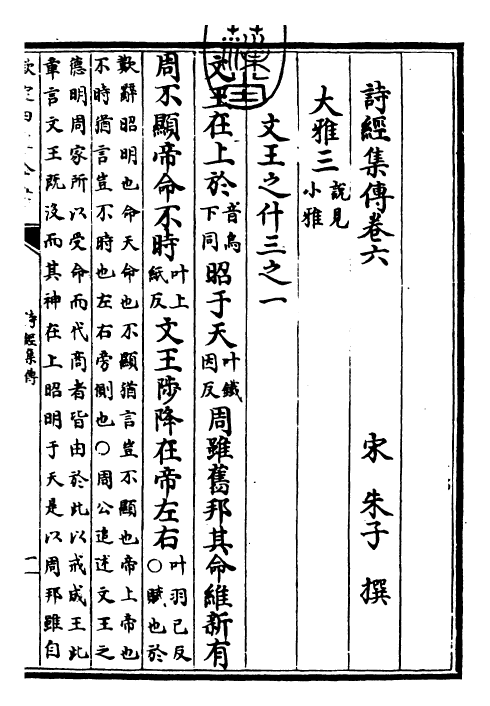 詩經集傳卷六
宋 朱子 撰
大雅三說見小雅
文王之什三之一
文王在上於音烏下同昭于天叶鐵因反周雖舊邦其命維新有
周不顯帝命不時叶上紙反文王陟降在帝左右叶羽已反○賦也於
歎辭昭明也命天命也不顯猶言豈不顯也帝上帝也
不時猶言豈不時也左右旁側也○周公追述文王之
德明周家所以受命而代商者皆由於此以戒成王此
章言文王既沒而其神在上昭明于天是以周邦雖自
詩經集傳
一